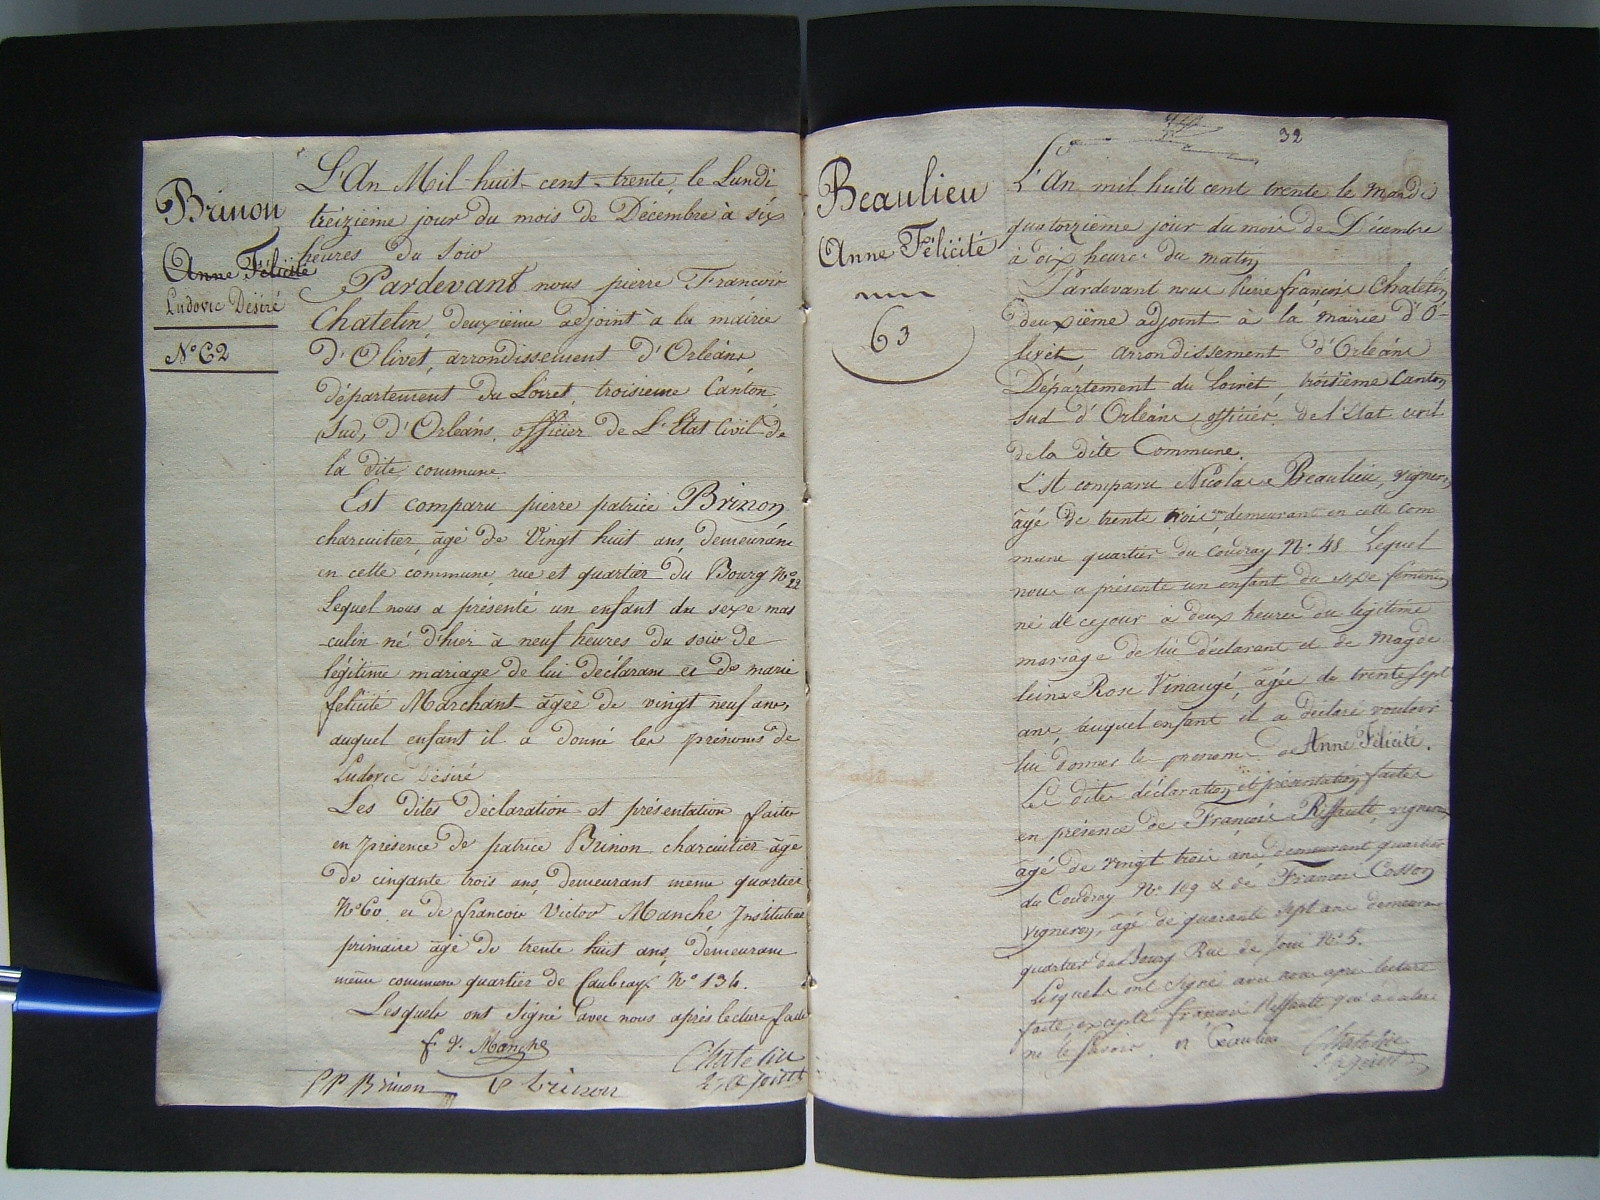 Brinon
Anne Félicité
Ludovic Désiré
N° 62
L'An Mil huit cent trente, le Lundi
treizième jour du mois de Décembre à six
heures du soir
Pardevant nous pierre François
Chatelin, deuxième adjoint à la mairie
d'Olivet, arrondissement d'Orléans
département du Loiret, troisieme Canton
Sud, d'Orléans, officier de L'Etat Civil de
la dite commune.
Est comparu pierre patrice Brinon
charcuitier, âgé de Vingt huit ans, demeurant
en cette commune, rue et quartier du Bourg N° 22
Lequel nous a présenté un enfant du sexe mas
culin né d'hier à neuf heures du soir de
légitime mariage de lui déclarant et de marie
félicité Marchant âgée de vingt neuf ans,
auquel enfant il a donné les prénoms de
Ludovic Désiré
Les dites déclaration et présentation faites
en présence de patrice Brinon charcuitier âgé
de cinqante trois ans, demeurant meme quartier
N° 60. et de françois Victor Manche Instituteur
primaire âgé de trente huit ans, demeurant
même commune quartier de N° 136.
Lesquels ont signé avec nous après lecture faite
f V. Manche
Chatelin
2e adjoint
PP Brinon P Brinon
32
Beaulieu
Anne Félicité
63
L'An mil huit cent trente le Mardi
quatorzième jour du mois de Décembre
à dix heures du matin
Pardevant nous Pierre françois Chatelin
deuxième adjoint à la Mairie d'O-
livet, arrondissement d'Orléans
Département du Loiret, troisième Canton
Sud d'Orléans officier de l'Etat civil
de la dite Commune.
Est comparu Nicolas Beaulieu, vigneron,
âgé de trente trois demeurant en cette com
mune quartier du Coudray N° 48 Lequel
nous a présenté un enfant du sexe féminin
né de cejour à deux heures du légitime
mariage de lui déclarant et de Magde
leine Rose Vinaugé, âgée de trente sept
ans, auquel enfant il a déclaré vouloir
lui donner les prenoms de Anne Félicité.
Les dites déclaration et présentation faites
en présence de François Riffault, vigneron
âgé de vingt trois ans, demeurant quartier
du Coudray N° 109 & de François Cosson
vigneron, âgé de quarante sept ans demeurant
quartier du Bourg Rue de N° 5.
Lesquels ont signé avec nous après lecture
faite, excepté françois Riffault qui a déclaré
ne le savoir. n Beaulieu
Chatelin
2e adjoint